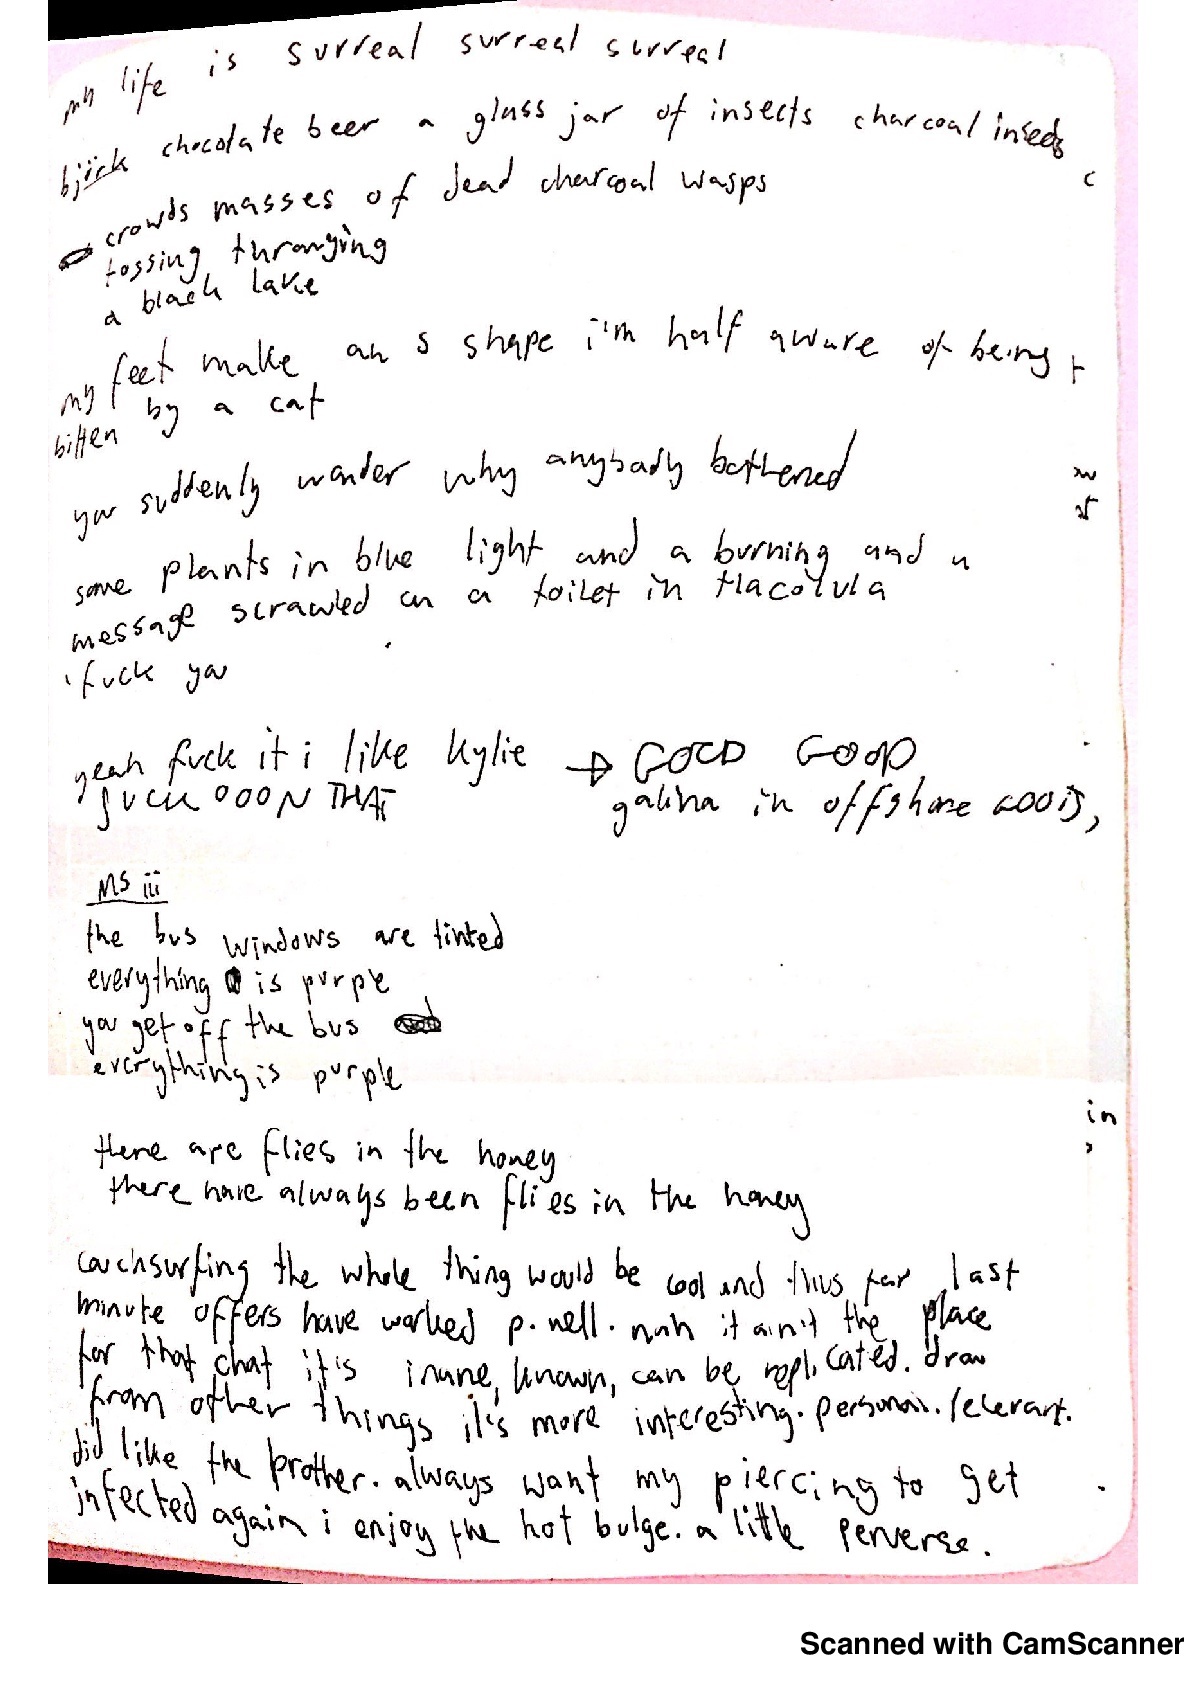 my life is surreal surreal surreal
björk chocolate beer a glass jar of insects charcoal insects
crowds masses of dead charcoal wasps
tossing thronging
a black lake
my feet make an s shape i'm half aware of being
bitten by a cat
you suddenly wonder why anybody bothered
some plants in blue light and a burning and a
message scrawled on a toilet in tlacolula
fuck you
yeah fuck it i like kylie → GOOD GOOD
FUCK OOON THAT
galina in offshore
MS iii
the bus windows are tinted
everything is purple
you get off the bus
everything is purple
in
there are flies in the honey
there have always been flies in the honey
couchsurfing the whole thing would be cool and thus far last
minute offers have worked p. well. nah it ain't the place
for that chat it's inane, known, can be replicated. draw
from other things it's more interesting. personal. relevant.
did like the brother. always want my piercing to get
infected again i enjoy the hot bulge. a little perverse.
Scanned with CamScanner